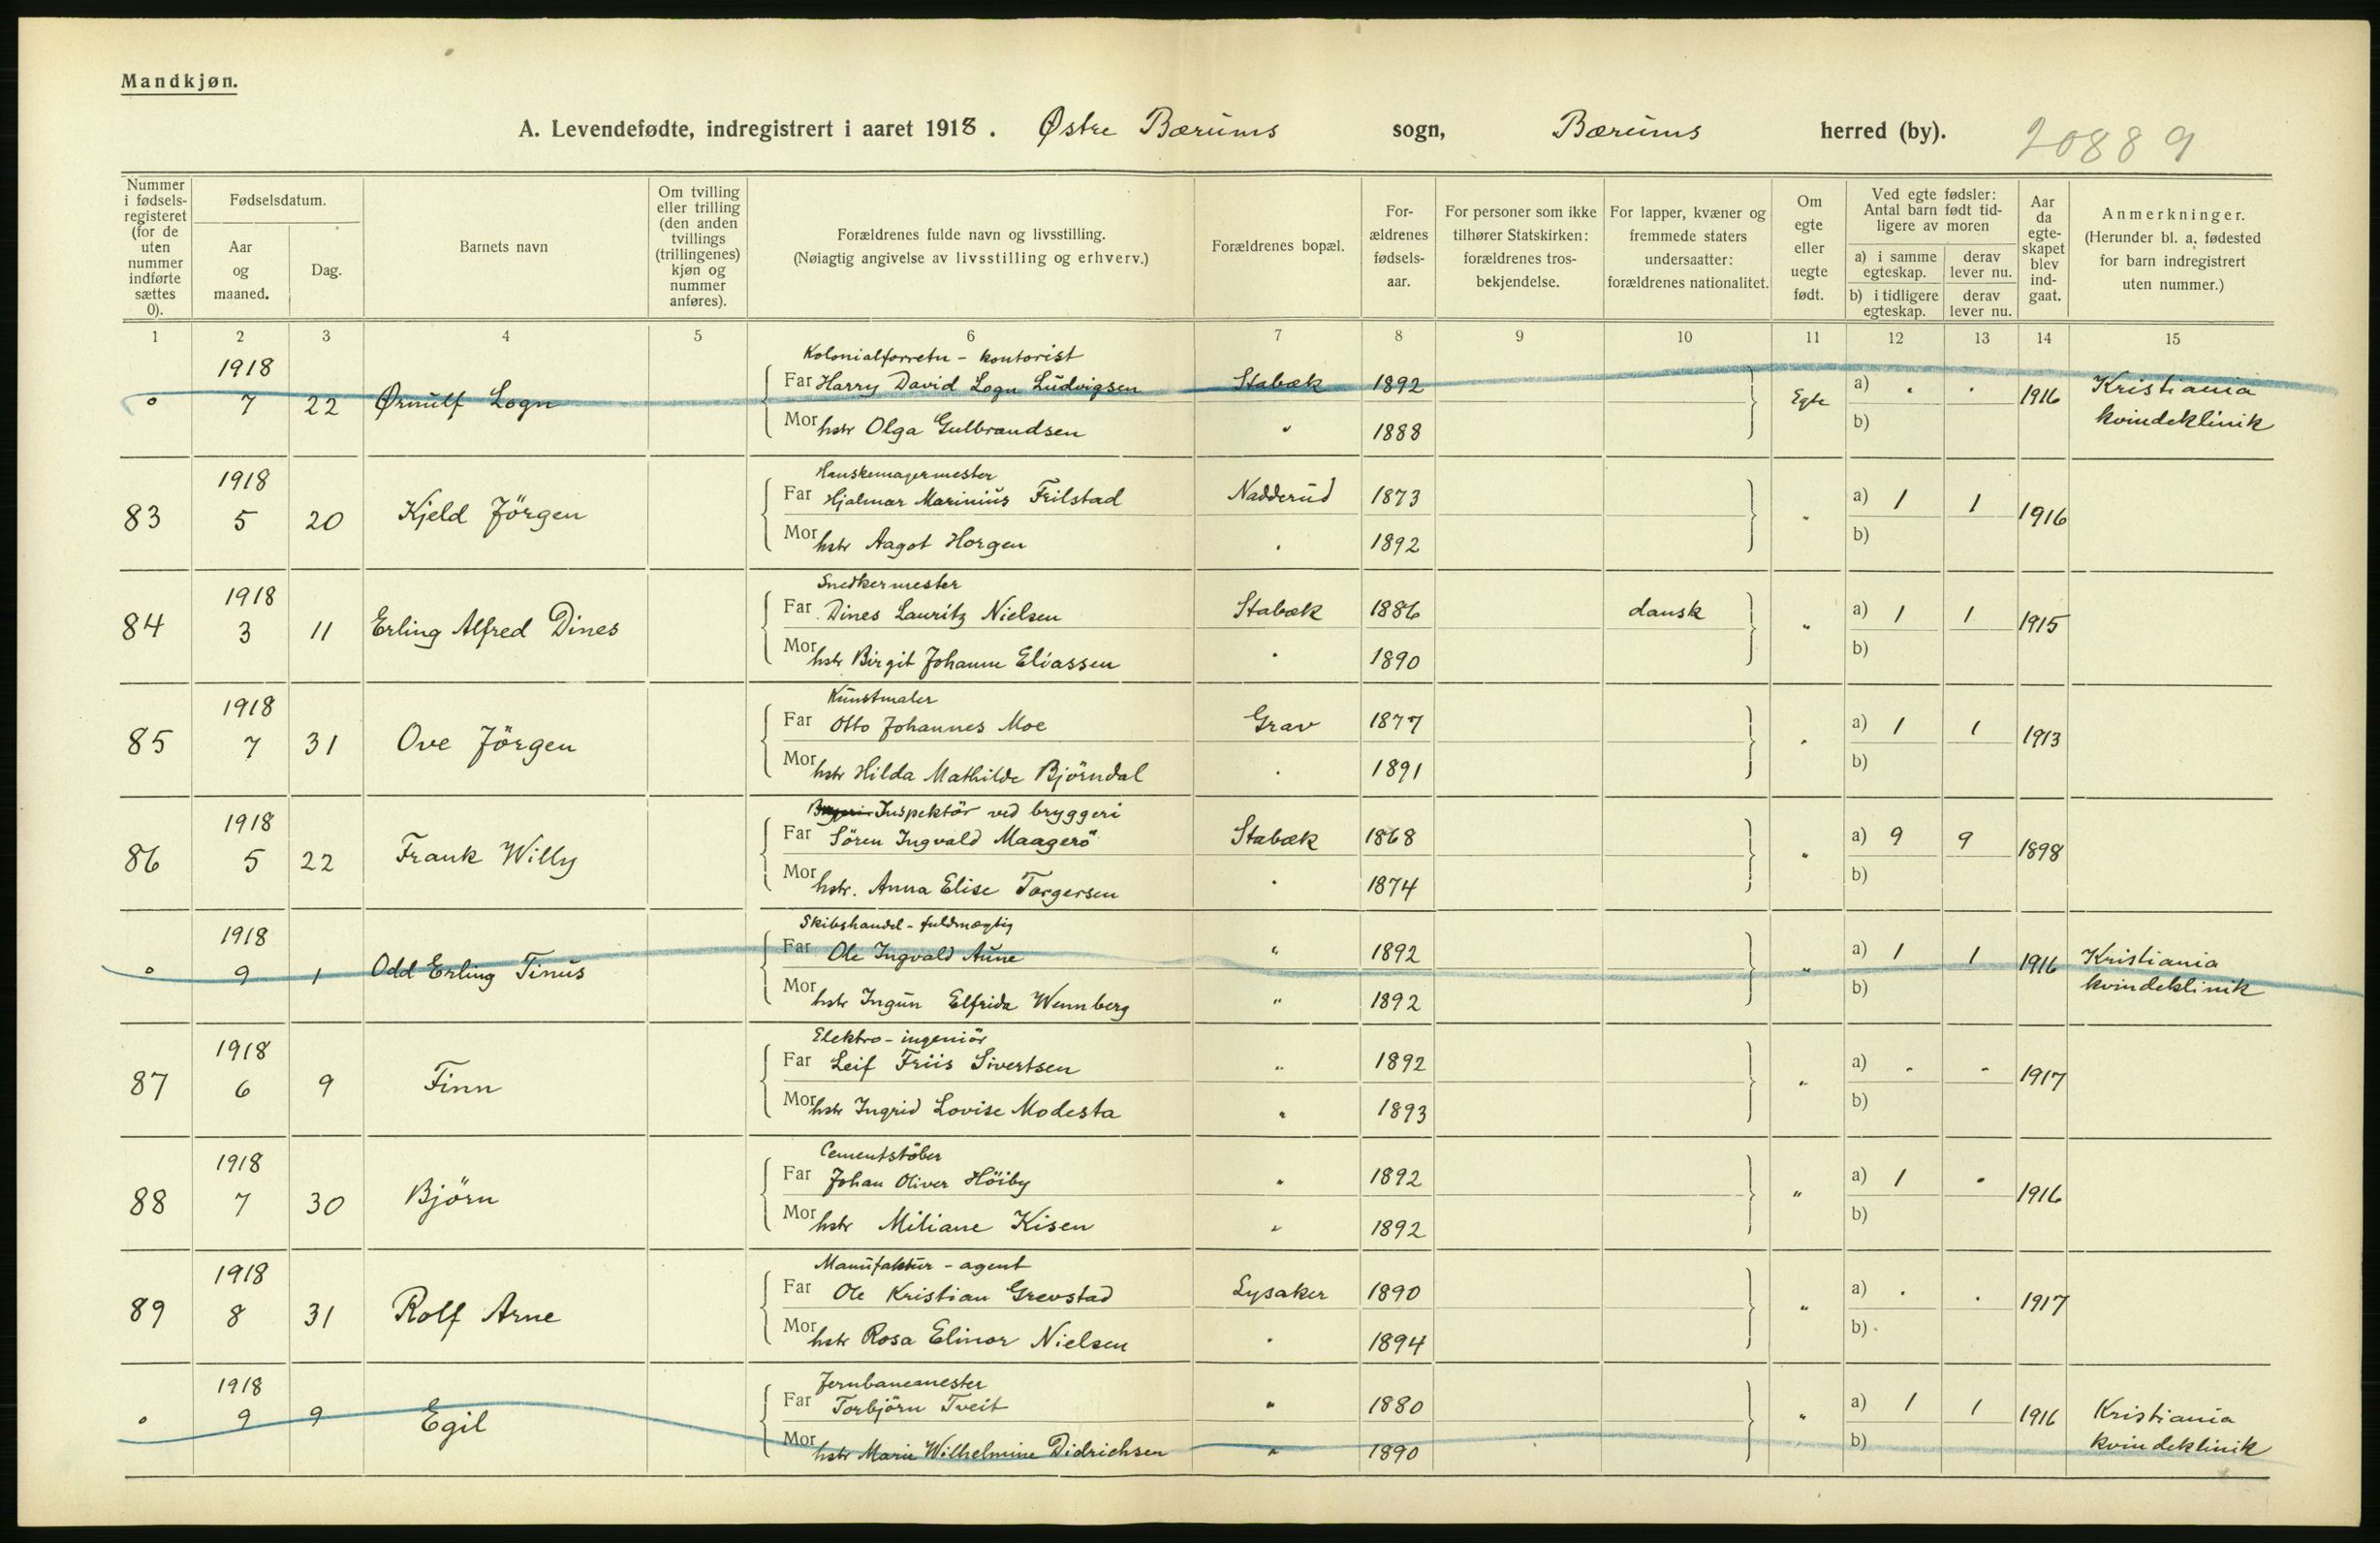 Mandkjøn.
A. Levendefødte, indregistrert i aaret 1918. Østre Bærums sogn, Bærums herred (by). 20889
Nummer i fødsels-registeret (for de uten nummer indførte sættes 0).
Fødselsdatum.
Aar og maaned.
Dag.
Barnets navn
Om tvilling eller trilling (den anden tvillings (trillingenes) kjøn og nummer anføres).
Forældrenes fulde navn og livsstilling.
(Nøiagtig angivelse av livsstilling og erhverv.)
Forældrenes bopæl.
For-ældrenes fødsels-aar.
For personer som ikke tilhører Statskirken: forældrenes tros-bekjendelse.
For lapper, kvæner og fremmede staters undersaatter: forældrenes nationalitet.
Om egte eller uegte født.
Ved egte fødsler: Antal barn født tid-ligere av moren
a) i samme egteskap. derav lever nu.
b) i tidligere egteskap. derav lever nu.
Aar da egte-skapet blev ind-gaat.
Anmerkninger.
(Herunder bl. a. fødested for barn indregistrert uten nummer.)
1 2 3 4 5 6 7 8 9 10 11 12 13 14 15
1918 Kolonialforretn - kontorist
0 7 22 Ørnulf Logn Far Harry David Logn Ludvigsen Stabæk 1892 Egte a) " " 1916 Kristiania
Mor hstr Olga Gulbrandsen " 1888 b) kvindeklinik
1918 Hanskemagermester
83 5 20 Kjeld Jörgen Far Hjalmar Marinius Frilstad Nadderud 1873 " a) 1 1 1916
Mor hstr Aagot Horgen " 1892 b)
1918 Snedkermester
84 3 11 Erling Alfred Dines Far Dines Lauritz Nielsen Stabæk 1886 dansk " a) 1 1 1915
Mor hstr Birgit Johanne Eliassen " 1890 b)
1918 Kunstmaler
85 7 31 Ove Jörgen Far Otto Johannes Moe Grav 1877 " a) 1 1 1913
Mor hstr Hilda Mathilde Björndal " 1891 b)
1918 Inspektör ved bryggeri
86 5 22 Frank Willy Far Sören Ingvald Maagerö Stabæk 1868 " a) 9 9 1898
Mor hstr. Anna Elise Torgersen " 1874 b)
1918 Skibshandel - fuldmægtig
0 9 1 Odd Erling Tinus Far Ole Ingvald Aune " 1892 " a) 1 1 1916 Kristiania
Mor hstr Ingun Elfrida Wennberg " 1892 b) kvindeklinik
1918 Elektro - ingeniör
87 6 9 Finn Far Leif Friis Sivertsen " 1892 " a) " " 1917
Mor hstr Ingrid Lovise Modesta " 1893 b)
1918 Cementstöber
88 7 30 Björn Far Johan Oliver Höiby " 1892 " a) 1 " 1916
Mor hstr Miliane Kisen " 1892 b)
1918 Manufaktur - agent
89 8 31 Rolf Arne Far Ole Kristian Grevstad Lysaker 1890 " a) " " 1917
Mor hstr Rosa Elinor Nielsen " 1894 b)
1918 Jernbanemester
0 9 9 Egil Far Torbjörn Tveit " 1880 " a) 1 1 1916 Kristiania
Mor hstr Marie Wilhelmine Didrichsen " 1890 b) kvindeklinik